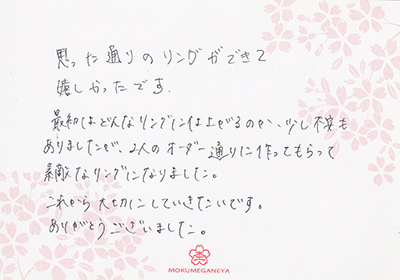 思った通りのリングができて
嬉しかったです.
最初はどんなリングに仕上がるのか、少し不安も
ありましたが、2人のオーダー通りに作ってもらって
素敵なリングになりました。
これから大切にしていきたいです。
ありがとうございました。
MOKUMEGANEYA